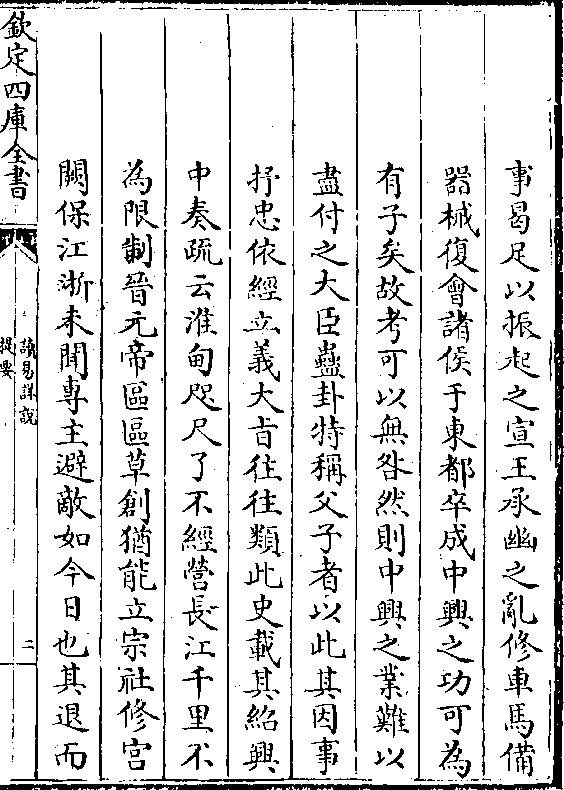 事曷足以振起之宣王承幽之亂修車馬備
器械復會諸侯于東都卒成中興之功可為
有子矣故考可以無咎然則中興之業難以
盡付之大臣蠱卦特稱父子者以此其因事
抒忠依經立義大旨往往類此史載其紹興
中奏疏云淮甸咫尺了不經營長江千里不
為限制晉元帝區區草創猶能立宗社修宮
闕保江浙未聞專主避敵如今日也其退而
欽定四庫全書
讀易詳說
提要
二